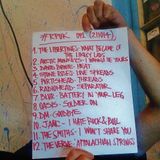 #FKTUK 092 (210114)
1. THE LIBERTINES - WHAT BECAME OF THE LIKELY LADS
2. ARCTIC MONKEYS - I WANNA BE YOURS
3. DAVID BOWIE - HEAT
4. STONE ROSES - LOVE SPREADS
5. PORTISHEAD - THREADS
6. RADIOHEAD - SEPARATOR
7. BLUR - BATTERY IN YOUR LEG
8. OASIS - SOLDIER ON
9. DM - GOODBYE
10. JAMC - I HATE ROCK & ROLL
11. THE SMITHS - I WON'T SHARE YOU
12. THE VERVE - APPALACHIAN SPRINGS